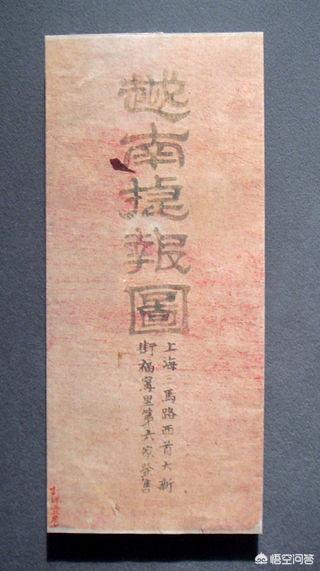 越南捷報圖
上海三馬路西首大新
街福寧里第六家發售
悟空问答